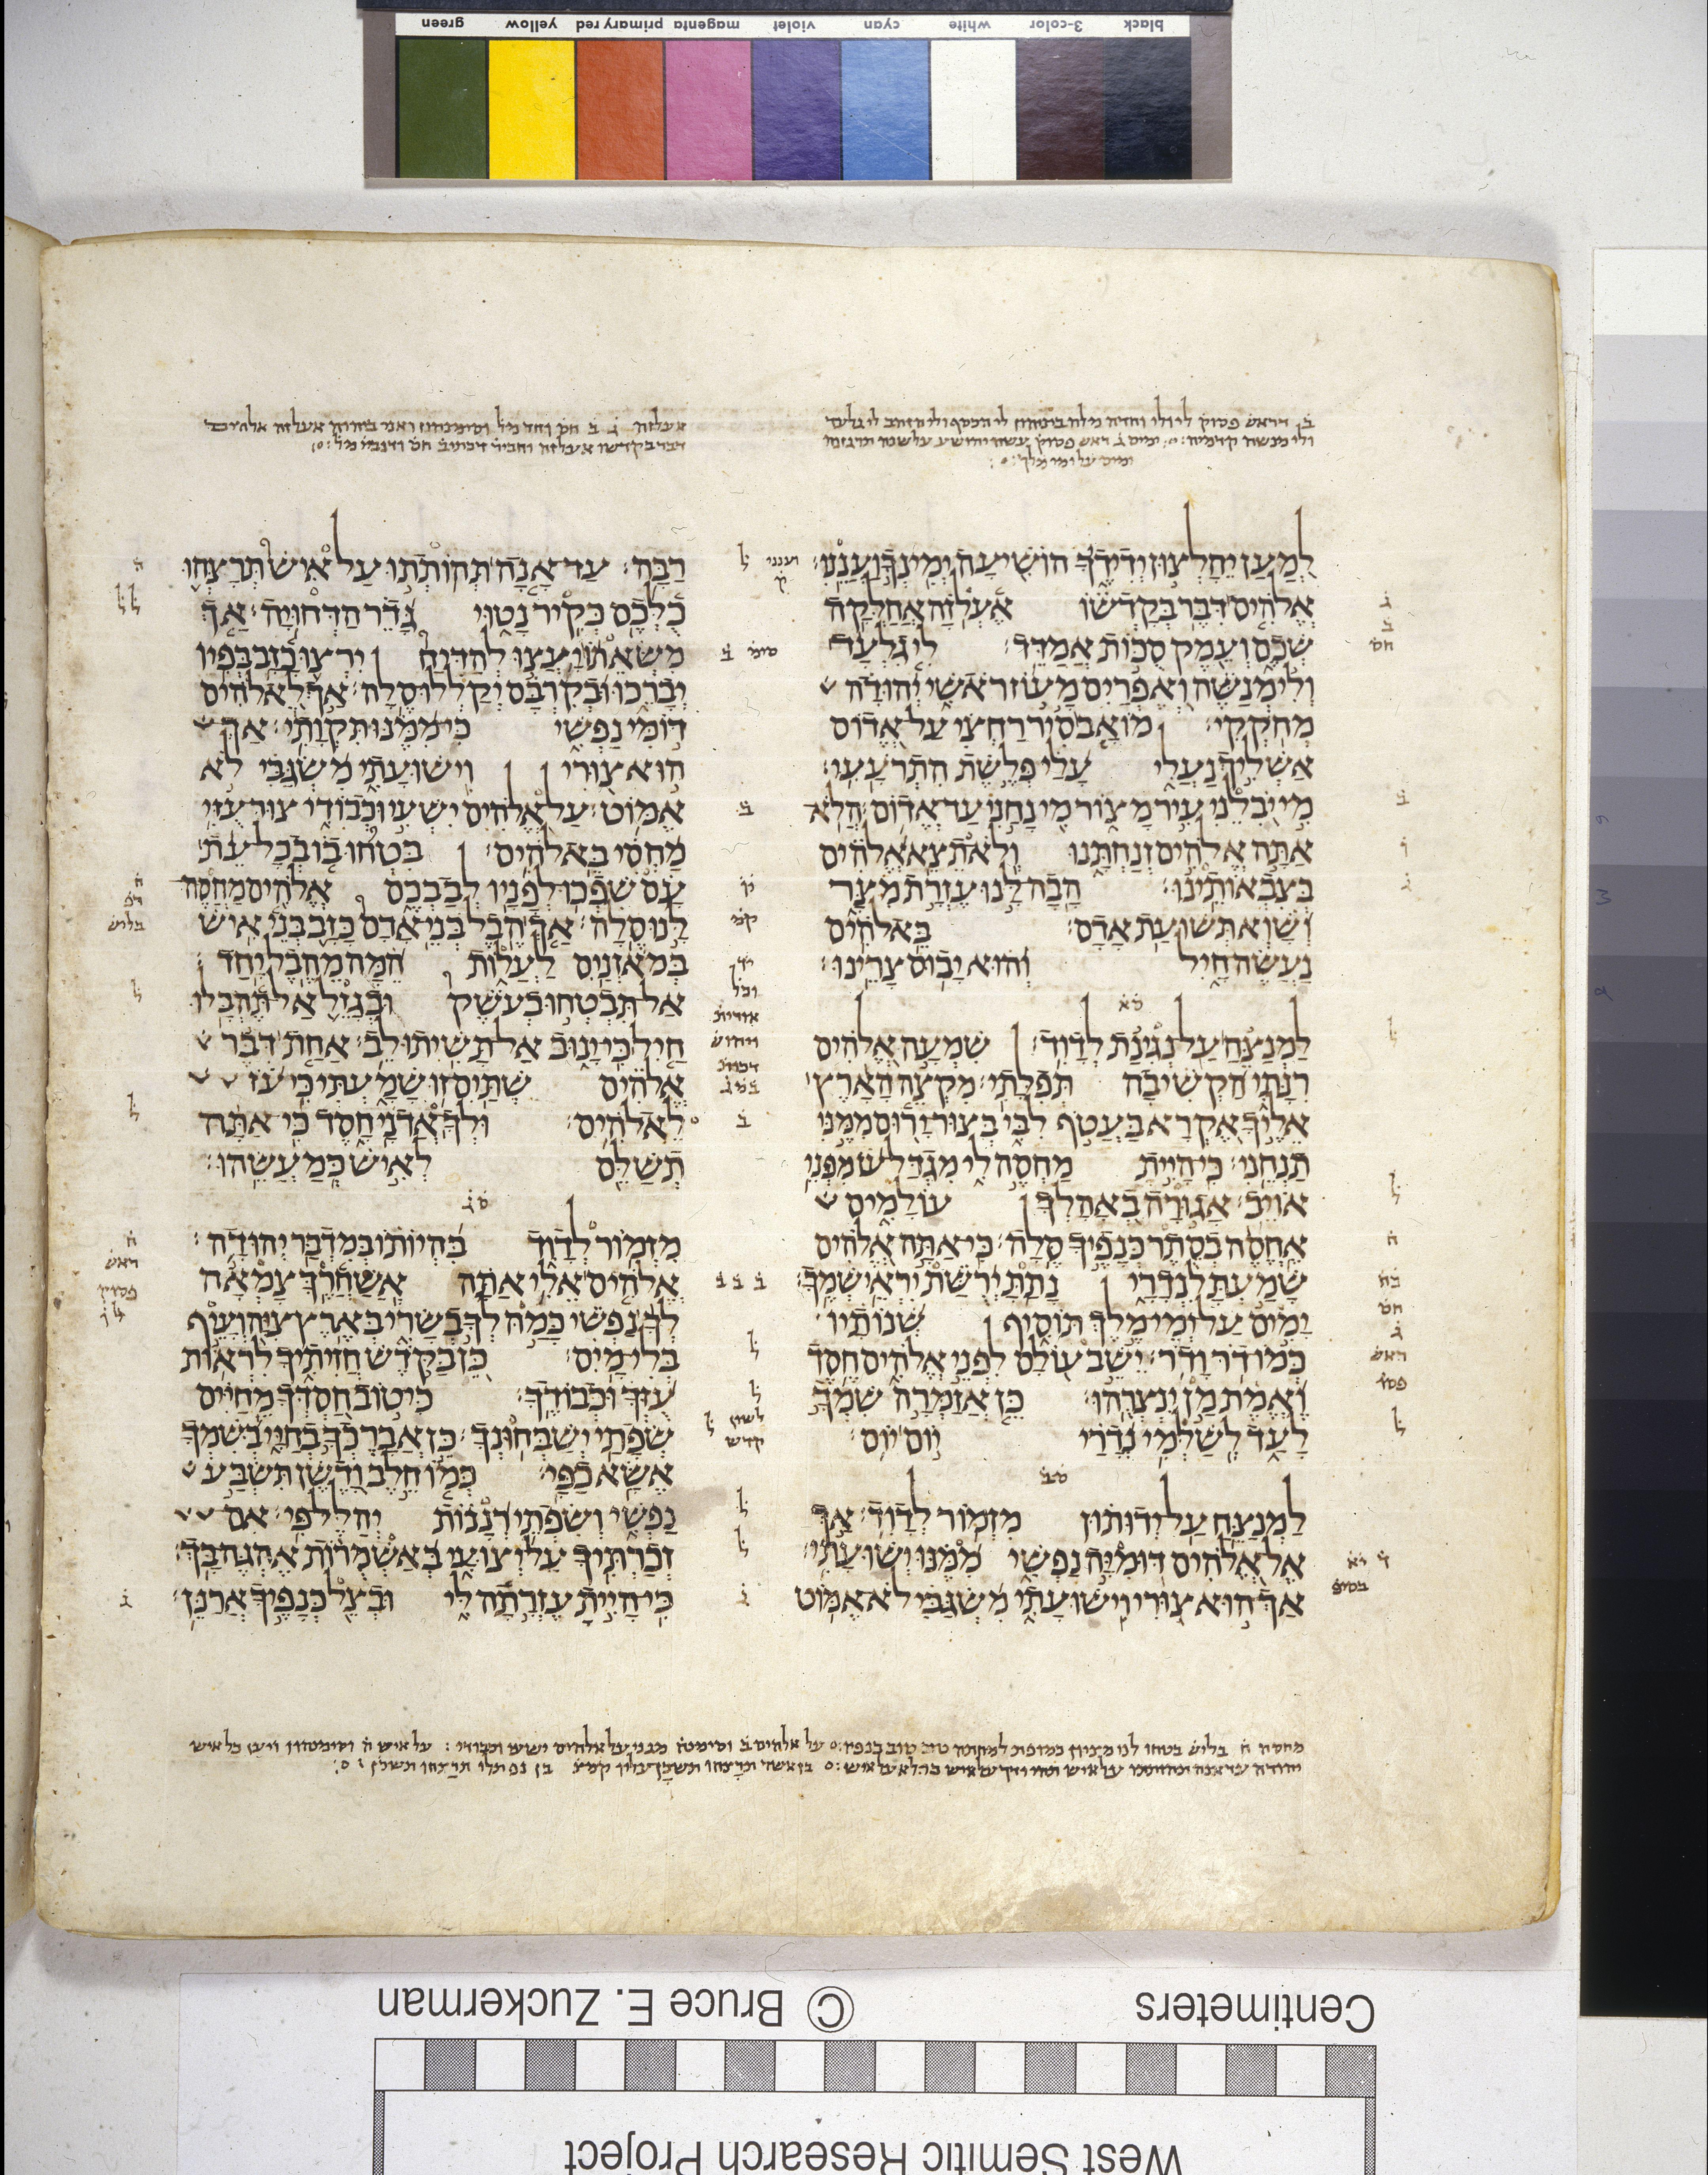 green yellow primary red magenta violet cyan white 3-color black
ב דראש פסוק לי ולי וחדה מלה ביניהון לי הכסף ולי הזהב לי גלעד
ימים על ימי מלך
למען יחלצון ידידך הושיעה ימינך ועננו׃
אלהים דבר בקדשו אעלזה אחלקה
שכם ועמק סכות אמדד׃ לי גלעד
ולי מנשה ואפרים מעוז ראשי יהודה
מחקקי׃ מואב סיר רחצי על אדום
אשליך נעלי עלי פלשת התרעעי׃
מי יבלני עיר מצור מי נחני עד אדום׃ הלא
אתה אלהים זנחתנו ולא תצא אלהים
בצבאותינו׃ הבה לנו עזרת מצר
ושוא תשועת אדם׃ באלהים
נעשה חיל והוא יבוס צרינו׃
סא
למנצח על נגינת לדוד׃ שמעה אלהים
רנתי הקשיבה תפלתי׃ מקצה הארץ
אליך אקרא בעטף לבי בצור ירום ממני
תנחני׃ כי היית מחסה לי מגדל עז מפני
אויב׃ אגורה באהלך עולמים
אחסה בסתר כנפיך סלה׃ כי אתה אלהים
שמעת לנדרי נתת ירשת יראי שמך׃
ימים על ימי מלך תוסיף שנותיו
כמו דר ודר׃ ישב עולם לפני אלהים חסד
ואמת מן ינצרהו׃ כן אזמרה שמך
לעד לשלמי נדרי יום יום׃
סב
למנצח על ידותון מזמור לדוד׃ אך
אל אלהים דומיה נפשי ממנו ישועתי׃
אך הוא צורי וישועתי משגבי לא אמוט
רבה׃ עד אנה תהותתו על איש תרצחו
כלכם כקיר נטוי גדר הדחויה׃ אך
משאתו יעצו להדיח ירצו כזב בפיו
יברכו ובקרבם יקללו סלה׃ אך לאלהים
דומי נפשי כי ממנו תקותי׃ אך
הוא צורי וישועתי משגבי לא
אמוט׃ על אלהים ישעי וכבודי צור עזי
מחסי באלהים׃ בטחו בו בכל עת
עם שפכו לפניו לבבכם אלהים מחסה
לנו סלה׃ אך הבל בני אדם כזב בני איש
במאזנים לעלות המה מהבל יחד׃
אל תבטחו בעשק ובגזל אל תהבלו
חיל כי ינוב אל תשיתו לב׃ אחת דבר
אלהים שתים זו שמעתי כי עז
לאלהים׃ ולך אדני חסד כי אתה
תשלם לאיש כמעשהו׃
סג
מזמור לדוד בהיותו במדבר יהודה׃
אלהים אלי אתה אשחרך צמאה
לך נפשי כמה לך בשרי בארץ ציה ועיף
בלי מים׃ כן בקדש חזיתיך לראות
עזך וכבודך׃ כי טוב חסדך מחיים
שפתי ישבחונך׃ כן אברכך בחיי בשמך
אשא כפי׃ כמו חלב ודשן תשבע
נפשי ושפתי רננות יהלל פי׃ אם
זכרתיך על יצועי באשמרות אהגה בך׃
כי היית עזרתה לי ובצל כנפיך ארנן׃
Centimeters © Bruce E. Zuckerman
West Semitic Research Project